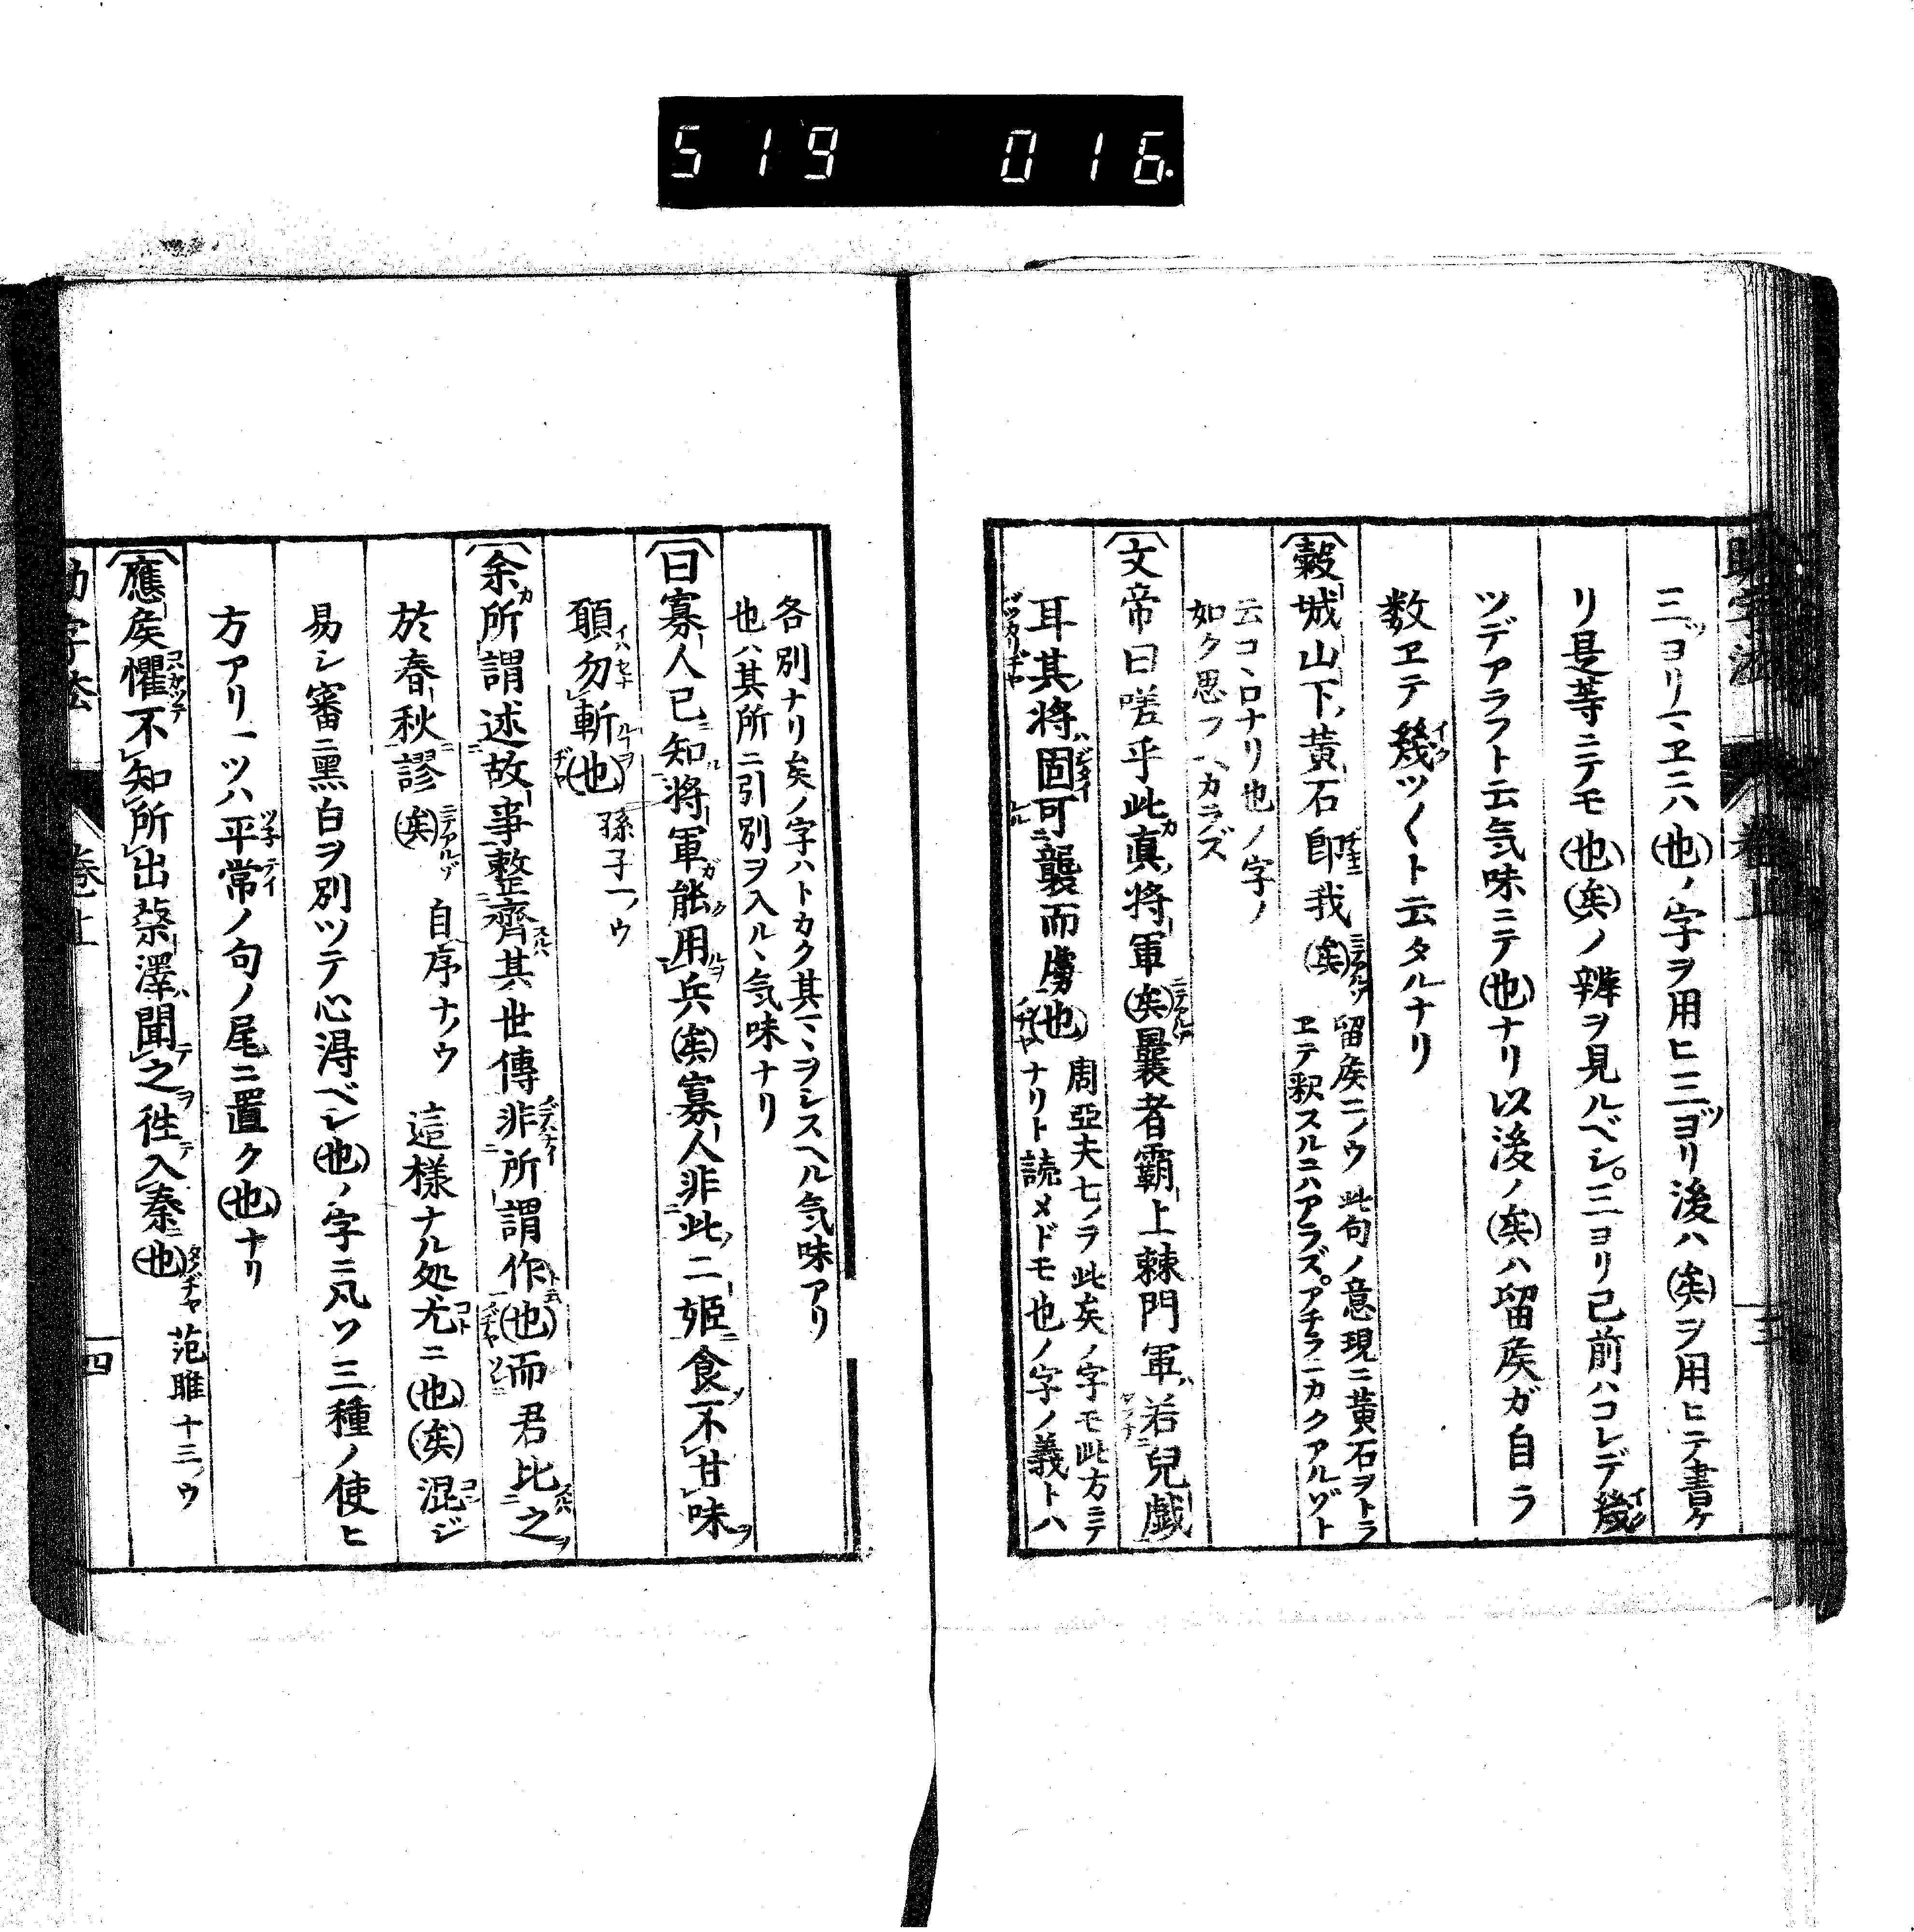 519 016.
三ツヨリ一マヱニハ(也)ノ字ヲ用ヒ三ツヨリ後ハ(矣)ヲ用ヒテ書ケ
リ是等ニテモ(也)(矣)ノ辨ヲ見ルベシ。三ヨリ已前ハコレデ幾
ツデアラフト云気味ニテ(也)ナリ以後ノ(矣)ハ留矦ガ自ラ
数ヱテ幾ツ〱ト云タルナリ
穀城山下黄石即我(矣) 留矦二ノウ 此句ノ意現ニ黄石ヲトラ
ヱテ釈スルニハアラズ。アチラニカクアルゾト
云コヽロナリ也ノ字ノ
如ク思フヘカラズ
文帝曰嗟乎此真將軍(矣)曩者霸上棘門軍若兒戯
耳其將固可襲而虜(也) 周亞夫七ノラ此矣ノ字モ此方ニテ
ナリト読メドモ也ノ字ノ義トハ
各別ナリ矣ノ字ハトカク其マヽヲシスヘル気味アリ
也ハ其所ニ引別ヲ入ルヽ気味ナリ
曰寡人已知將軍能用兵(矣)寡人非此二姬食不甘味
願勿斬(也) 孫子一ノウ
余所謂述故事整齊其世傳非所謂作(也)而君比之
於春秋謬(矣) 自序ナノウ 這様ナル処尤ニ(也)(矣)混ジ
易シ審ニ黒白ヲ別ツテ心淂ベシ(也)ノ字ニ凡ソ三種ノ使ヒ
方アリ一ツハ平常ノ句ノ尾ニ置ク(也)ナリ
應矦懼不知所出蔡澤聞之徃入秦(也) 范雎十三ノウ
助字法 巻上 四